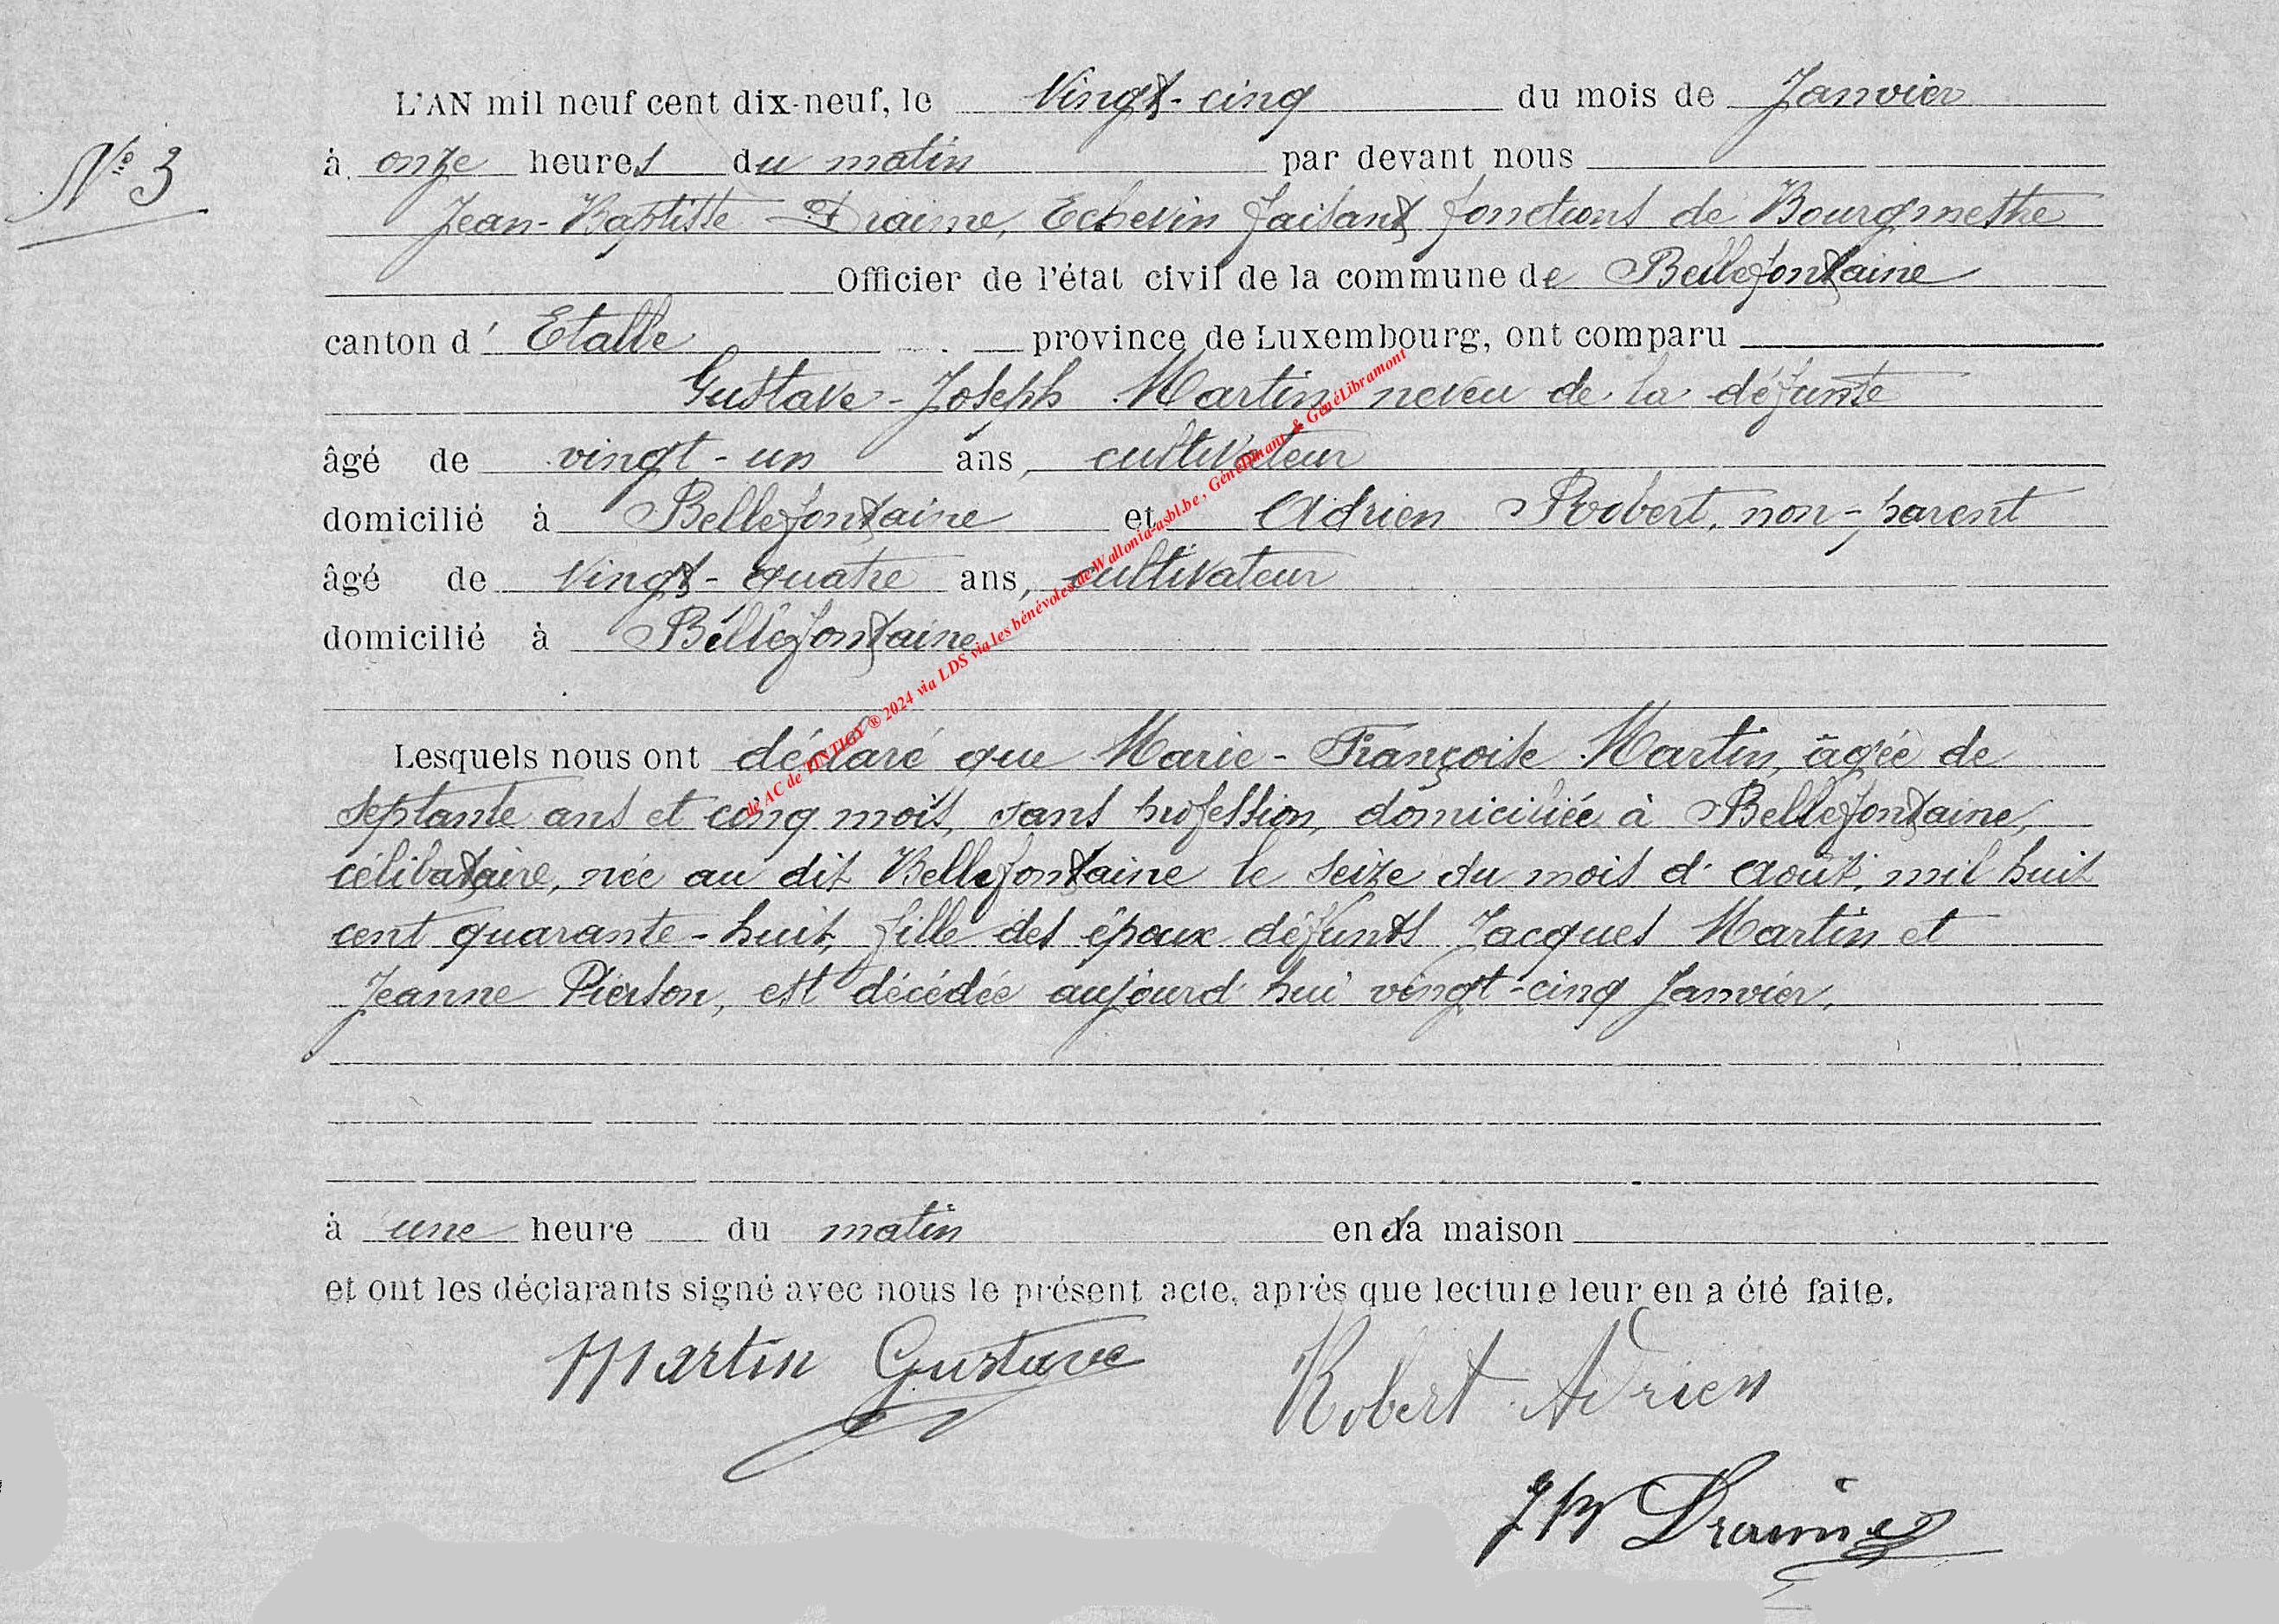 L'AN mil neuf cent dix-neuf, le Vingt-cinq du mois de Janvier
N° 3
à onze heures du matin par devant nous
Jean-Baptiste Draime, Echevin faisant fonctions de Bourgmestre
Officier de l'état civil de la commune de Bellefontaine
canton d' Etalle province de Luxembourg, ont comparu
Gustave-Joseph Martin neveu de la défunte
âgé de vingt-un ans, cultivateur
domicilié à Bellefontaine et Adrien Robert, non-parent
âgé de Vingt-quatre ans, cultivateur
domicilié à Bellefontaine
de AC de TINTIGY ® 2024 via LDS via les bénévoles de Wallonia-asbl.be, GénéDinant & GénéLibramont
Lesquels nous ont déclaré que Marie-Françoise Martin, âgée de
septante ans et cinq mois, sans profession, domiciliée à Bellefontaine,
célibataire, née au dit Bellefontaine le seize du mois d'août, mil huit
cent quarante-huit, fille des époux défunts Jacques Martin et
Jeanne Pierson, est décédée aujourd'hui vingt-cinq Janvier,
à une heure du matin en sa maison
et ont les déclarants signé avec nous le présent acte, après que lecture leur en a été faite.
Martin Gustave
Robert Adrien
JB Draime